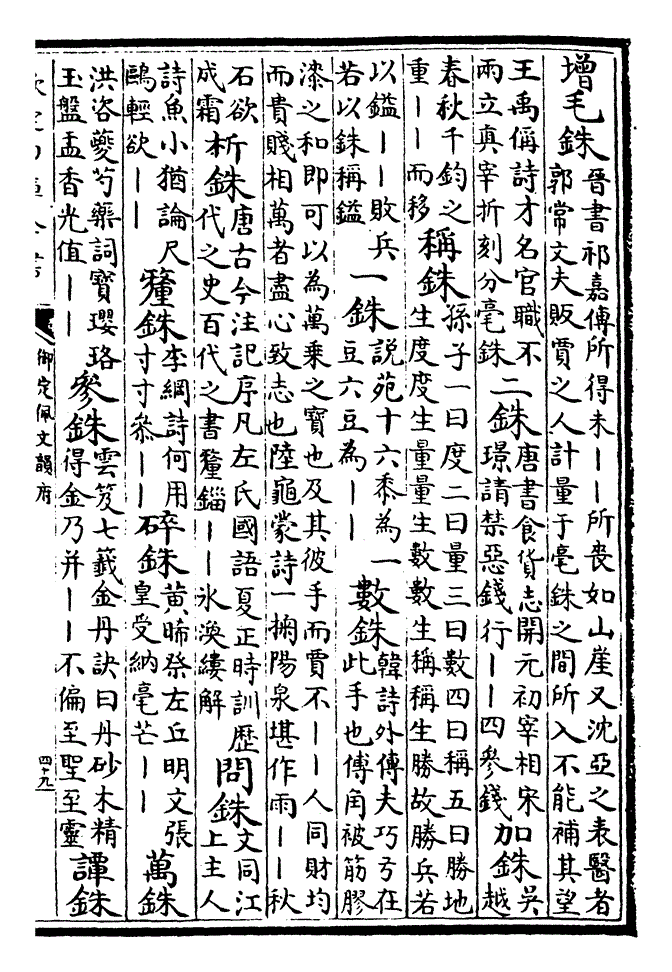 增毛銖 晉書祁嘉傳所得未丨丨所喪如山崖又沈亞之表醫者
郭常文夫販賈之人計量于毫銖之間所入不能補其望
王禹偁詩才名官職不
兩立真宰折刻分毫銖 二銖 唐書食貨志開元初宰相宋
璟請禁惡錢行丨丨四參錢 加銖 吳
越
春秋千鈞之
重丨丨而移 稱銖 孫子一曰度二曰量三曰數四曰稱五曰勝地
生度度生量量生數數生稱稱生勝故勝兵若
以鎰丨丨敗兵
若以銖稱鎰 一銖 說苑十六黍為一
豆六豆為丨丨 數銖 韓詩外傳夫巧弓在
此手也傅角被筋膠
漆之和即可以為萬乗之寶也及其彼手而賈不丨丨人同財均
而貴賤相萬者盡心致志也陸龜蒙詩一掬陽泉堪作雨丨丨秋
石欲
成霜 析銖 唐古今注記序凡左氏國語夏正時訓歴
代之史百代之書釐錙丨丨氷渙縷解 問銖 文同江
上主人
詩魚小猶論尺
鷗輕欲丨丨 釐銖 李綱詩何用
寸寸叅丨丨 碎銖 黄晞祭左丘明文張
皇受納毫芒丨丨 萬銖
洪咨夔芍藥詞寶瓔珞
玉盤盂香光值丨丨 參銖 雲笈七籤金丹訣曰丹砂木精
得金乃并丨丨不偏至聖至靈 譚銖
御定佩文韻府
四十九